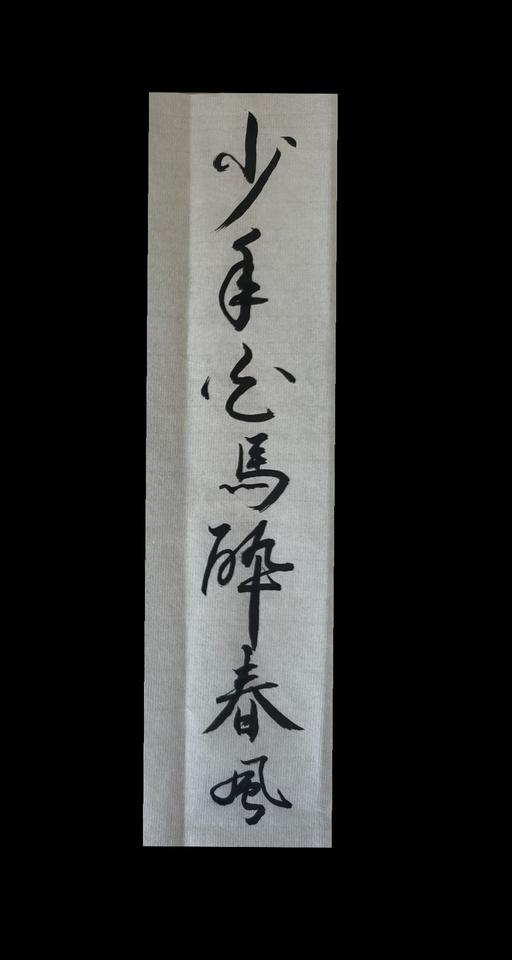 少年白馬醉春風